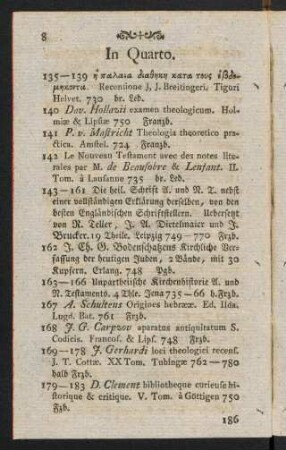 8
In Quarto.
135—139 ἡ παλαια διαθηκη κατα τους ἑβδο-
μηκοντα. Recensione J. J. Breitingeri. Tiguri
Helvet. 730 br. Led.
140 Dav. Hollazii examen theologicum. Hol-
miæ & Lipsiæ 750 Franzb.
141 P. v. Mastricht Theologia theoretico pra-
ctica. Amstel. 724 Franzb.
142 Le Nouveau Testament avec des notes lite-
rales par M. de Beausobre & Lenfant. II.
Tom. à Lausanne 735 br. Led.
143—161 Die heil. Schrift A. und N. T. nebst
einer vollständigen Erklärung derselben, von den
besten Engländischen Schriftstellern. Uebersetzt
von R. Teller, J. A. Dietelmaier und J.
Brucker. 19 Theile, Leipzig 749—770 Frzb.
162 J. Ch. G. Bodenschatzens Kirchliche Ver-
fassung der heutigen Juden, 2 Bände, mit 30
Kupfern, Erlang. 748 Pgb.
163—166 Unpartheiische Kirchenhistorie A. und
N. Testaments. 4 Thle. Jena 735—66 h. Frzb.
167 A. Schultens Origines hebrææ. Ed. IIda.
Lugd. Bat. 761 Frzb.
168 J. G. Carpzov aparatus antiquitatum S.
Codicis. Francof. & Lips. 748 Frzb.
169—178 J. Gerhardi loci theologici recens.
J. T. Cottæ. XX Tom. Tubingæ 762—780
halb Frzb.
179—183 D. Clement bibliotheque curieuse hi-
storique & critique. V. Tom. à Göttigen 750
Fzb.
186